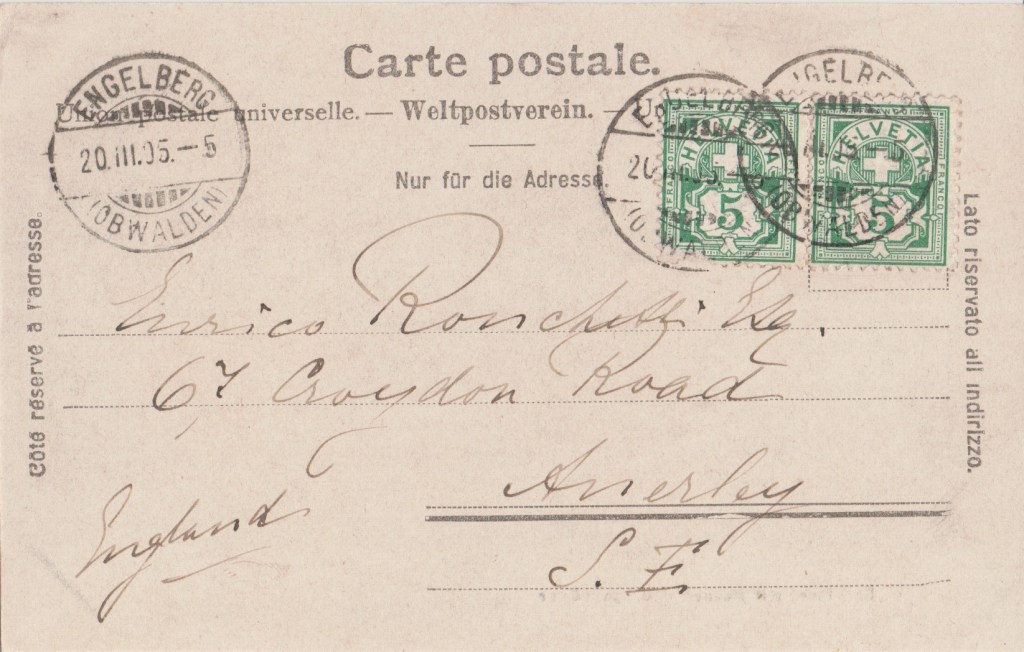 Carte postale.
Union postale universelle. — Weltpostverein. — Un
Nur für die Adresse
ENGELBERG
20.III.05.—5
(OBWALDEN)
HELVETIA
FRANCO
5
HELVETIA
FRANCO
5
Côté réservé à l'adresse.
Lato riservato all indirizzo.
Enrico Ronchetti Esq.
67 Croydon Road
Anerley
S.E
England